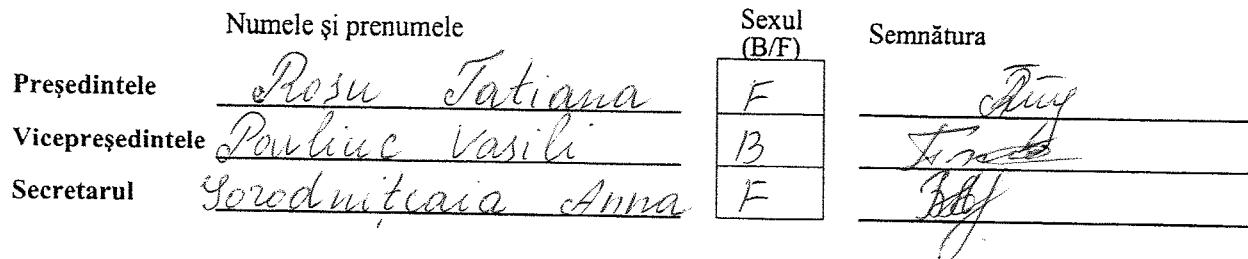 Numele și prenumele Sexul (B/F) Semnătura
Președintele Rosu Tatiana F
Vicepreședintele Pavliuc Vasili B
Secretarul Gorodnițcaia Anna F